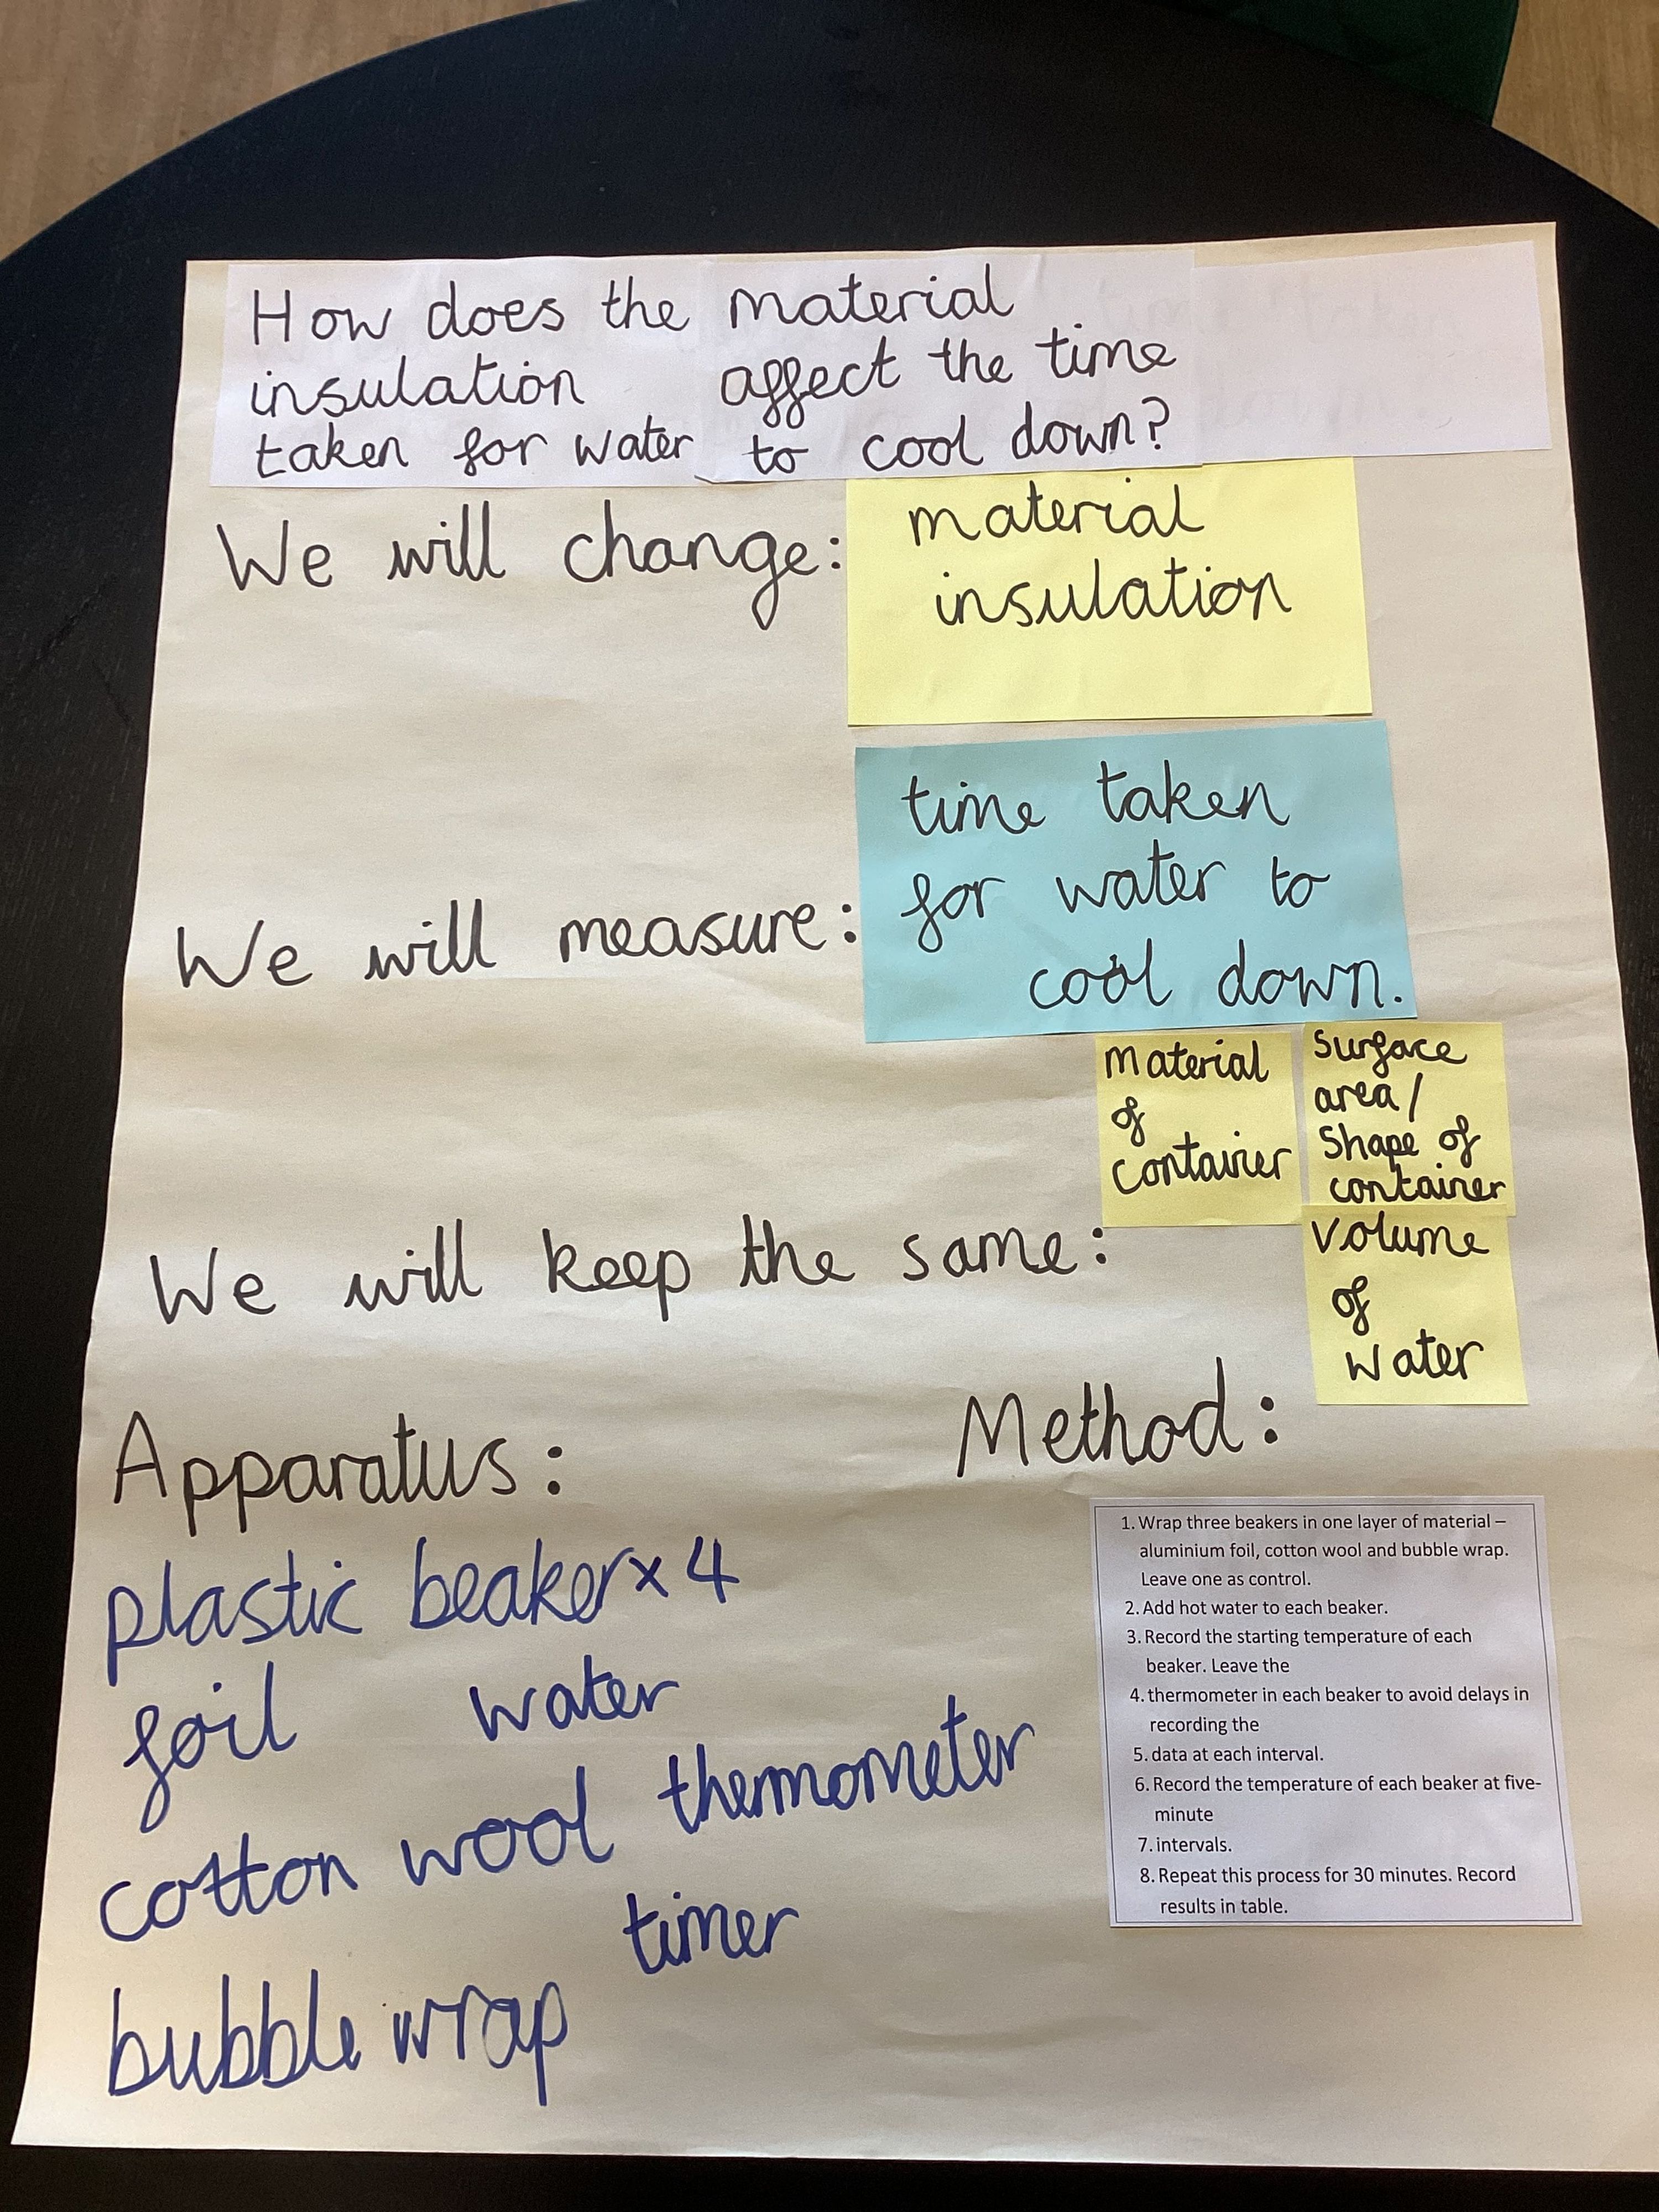 How does the material
insulation affect the time
taken for water to cool down?
We will change:
material
insulation
We will measure:
time taken
for water to
cool down.
We will keep the same:
Material
of
container
Surface
area/
Shape of
container
Volume
of
water
Apparatus:
plastic beaker x 4
foil water
cotton wool thermometer
timer
bubble wrap
Method:
1. Wrap three beakers in one layer of material –
aluminium foil, cotton wool and bubble wrap.
Leave one as control.
2. Add hot water to each beaker.
3. Record the starting temperature of each
beaker. Leave the
4. thermometer in each beaker to avoid delays in
recording the
5. data at each interval.
6. Record the temperature of each beaker at five-
minute
7. intervals.
8. Repeat this process for 30 minutes. Record
results in table.